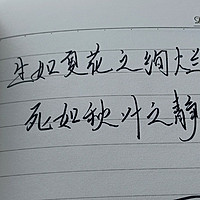 生如夏花之绚烂
死如秋叶之静